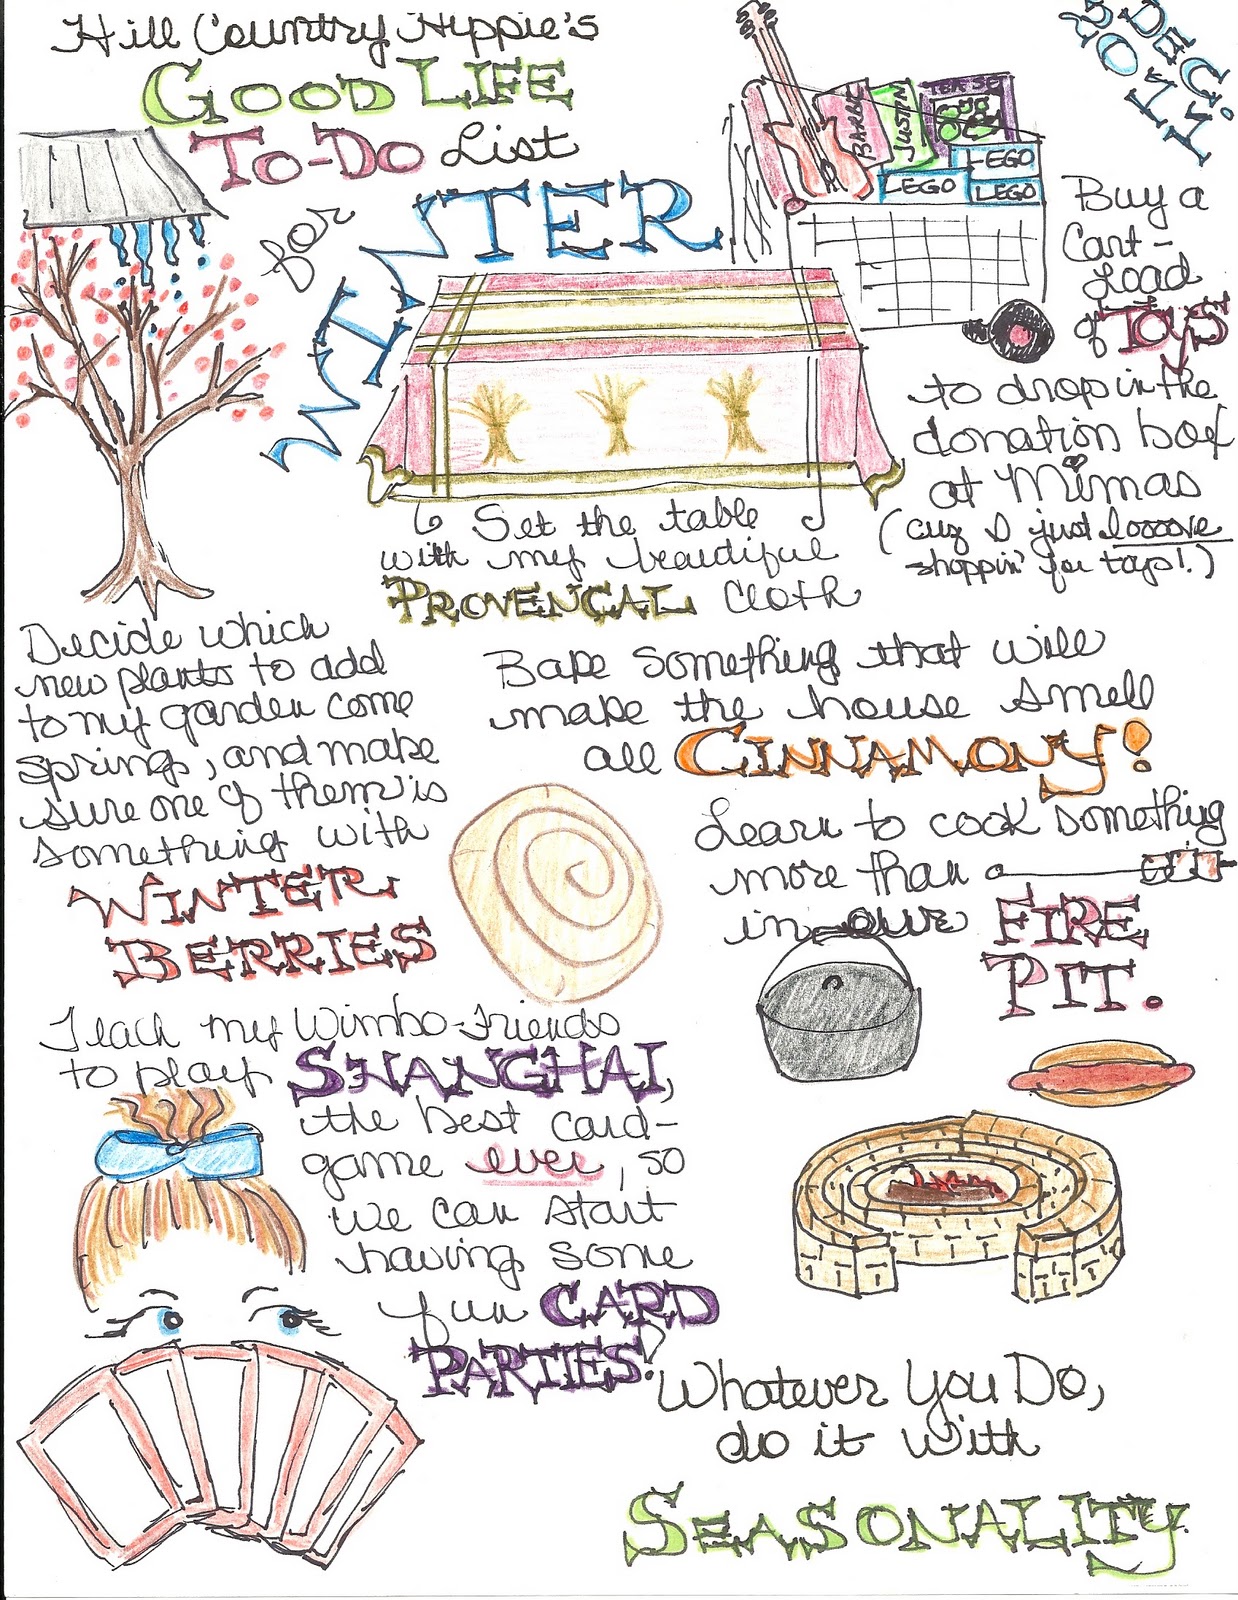 Hill Country Hippie's
GOOD LIFE
TO-DO List
for
WINTER
DEC.
2011
BARBIE
JUSTIN
TEA SET
LEGO
LEGO
LEGO
Buy a
Cart-
Load
of TOYS
to drop in the
donation box
at Mimas
(cuz I just loooove
shoppin' for toys!)
Set the table
with my beautiful
PROVENCAL cloth
Decide which
new plants to add
to my garden come
spring, and make
sure one of them is
something with
WINTER
BERRIES
Bake something that will
make the house smell
all CINNAMONY!
Learn to cook something
more than a
in our FIRE
PIT.
Teach my Wimbo-Friends
to play SHANGHAI,
the best card-
game ever, so
we can start
having some
fun CARD
PARTIES!
Whatever You Do,
do it with
SEASONALITY.